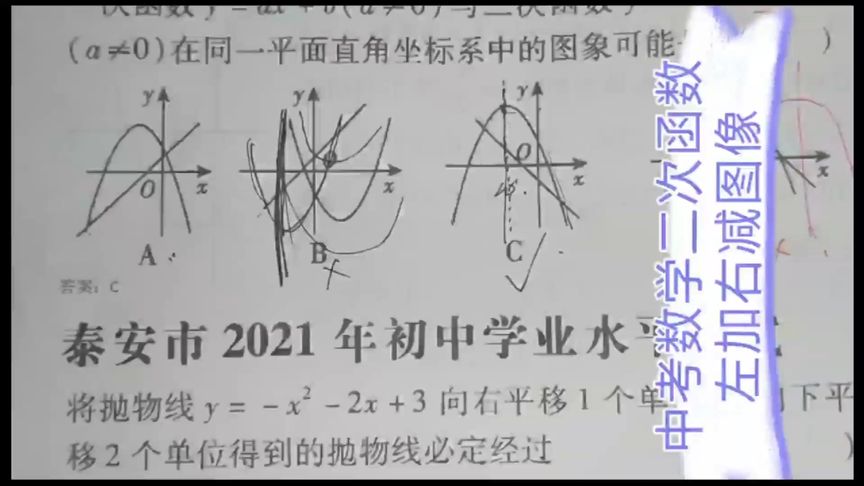 (a≠0)在同一平面直角坐标系中的图象可能
y
x
O
A
y
x
B
y
x
O
C
x
答案：C
泰安市 2021 年初中学业水
将抛物线 y = -x² - 2x + 3 向右平移 1 个单
下平
移 2 个单位得到的抛物线必定经过
)
中考数学二次函数
左加右减图像